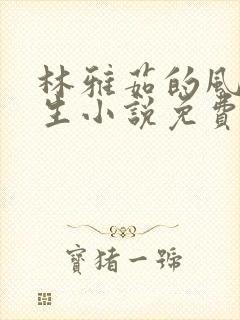 林雅茹的风
生小說免費
寶猪一號